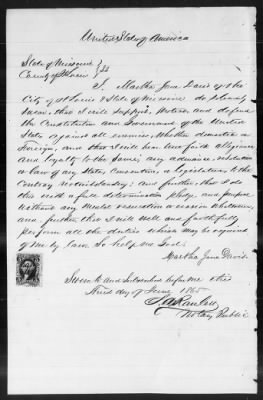 United States of America
State of Missouri } SS
County of
I, Martha Jane Davis of the
City of St Louis & State of Missouri do solemnly
swear, that I will support, protect, and defend
the Constitution and Government of the United
States, against all enemies, whether domestic or
Foreign, and that I will bear true faith, allegiance
and loyalty to the same, any ordinance, resolution
or law of any State, Convention, or legislature to the
Contrary notwithstanding; and further, that I do
this with a full determination, pledge, and purpose
without any mental reservation or evasion whatsoever,
and, further, that I will well and faithfully
perform all the duties which may be required
of me by law. So help me God.
Martha Jane Davis
Sworn to and Subscribed before me this
third day of June 1865
Notary Public